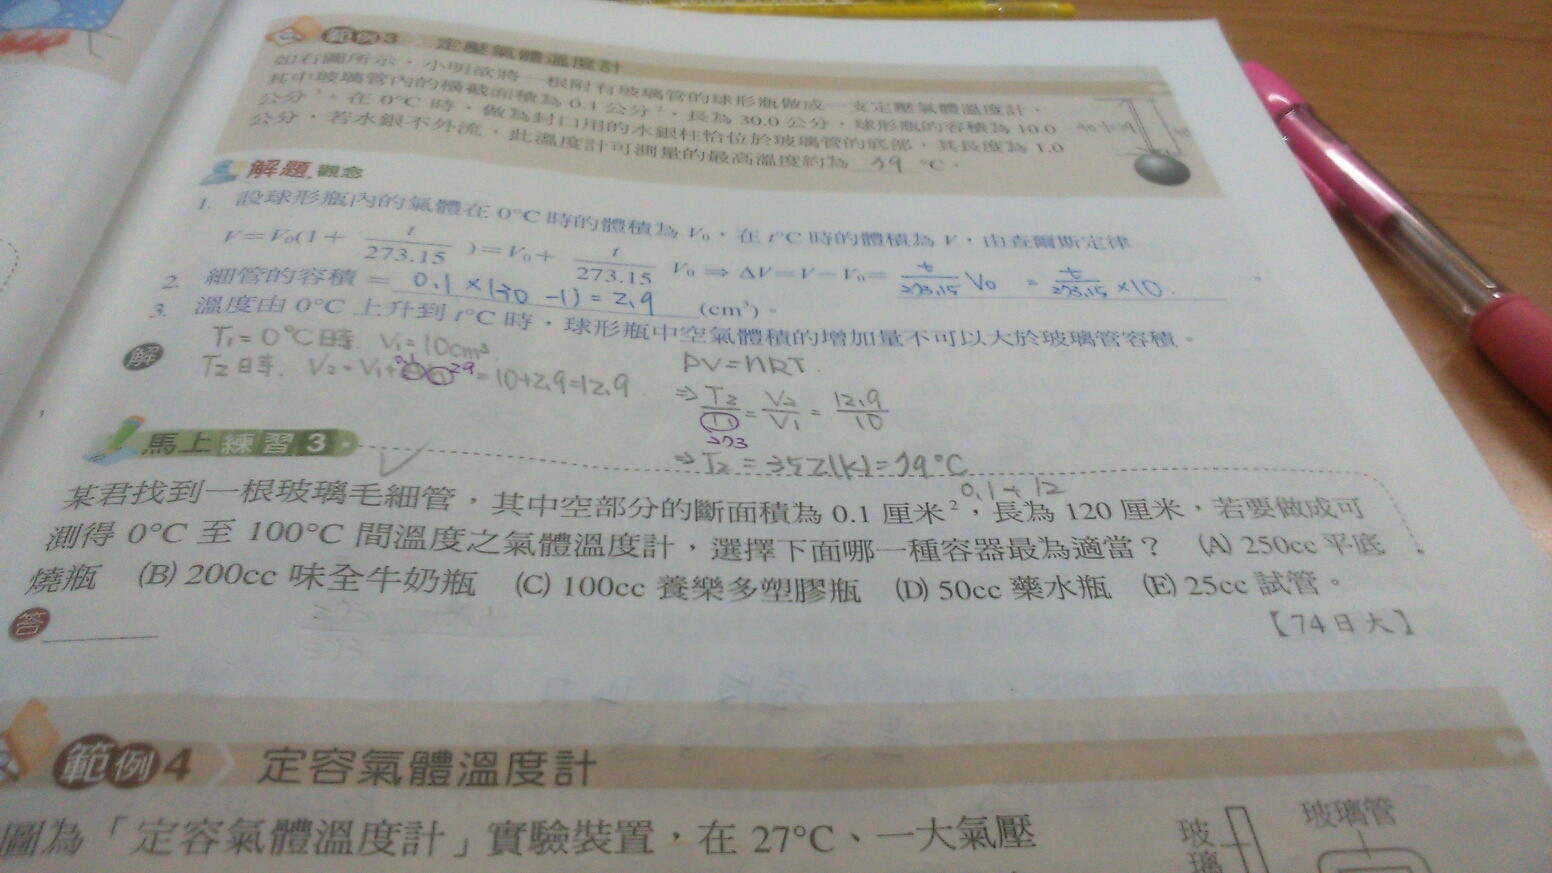 範例3 定壓氣體溫度計
如右圖所示，小明欲將一根附有玻璃管的球形瓶做成一支定壓氣體溫度計，
其中玻璃管內的橫截面積為 0.1 公分²，長為 30.0 公分，球形瓶的容積為 10.0
公分³。在 0°C 時，做為封口用的水銀柱恰位於玻璃管的底部，其長度為 1.0
公分，若水銀不外流，此溫度計可測量的最高溫度約為 79 °C。
解題觀念
1. 設球形瓶內的氣體在 0°C 時的體積為 V₀，在 t°C 時的體積為 V，由查爾斯定律
V=V₀(1+ t/273.15 )=V₀+ t/273.15 V₀ ⇒ ΔV=V-V₀= t/273.15 V₀ = t/273.15 ×10
2. 細管的容積 = 0.1×(30-1)=2.9 (cm³)。
3. 溫度由 0°C 上升到 t°C 時，球形瓶中空氣體積的增加量不可以大於玻璃管容積。
解
T₁=0°C時. V₁=10cm³
T₂時. V₂=V₁+ 29 =10+2.9=12.9
PV=nRT
⇒ T₂/T₁ = V₂/V₁ = 12.9/10
273
⇒ T₂=352(k)=79°C
馬上練習3
0.1+12
某君找到一根玻璃毛細管，其中空部分的斷面積為 0.1 厘米²，長為 120 厘米，若要做成可
測得 0°C 至 100°C 間溫度之氣體溫度計，選擇下面哪一種容器最為適當？ (A) 250cc 平底
燒瓶 (B) 200cc 味全牛奶瓶 (C) 100cc 養樂多塑膠瓶 (D) 50cc 藥水瓶 (E) 25cc 試管。
【74日大】
答
範例4 定容氣體溫度計
圖為「定容氣體溫度計」實驗裝置，在 27°C、一大氣壓
玻璃
玻璃管